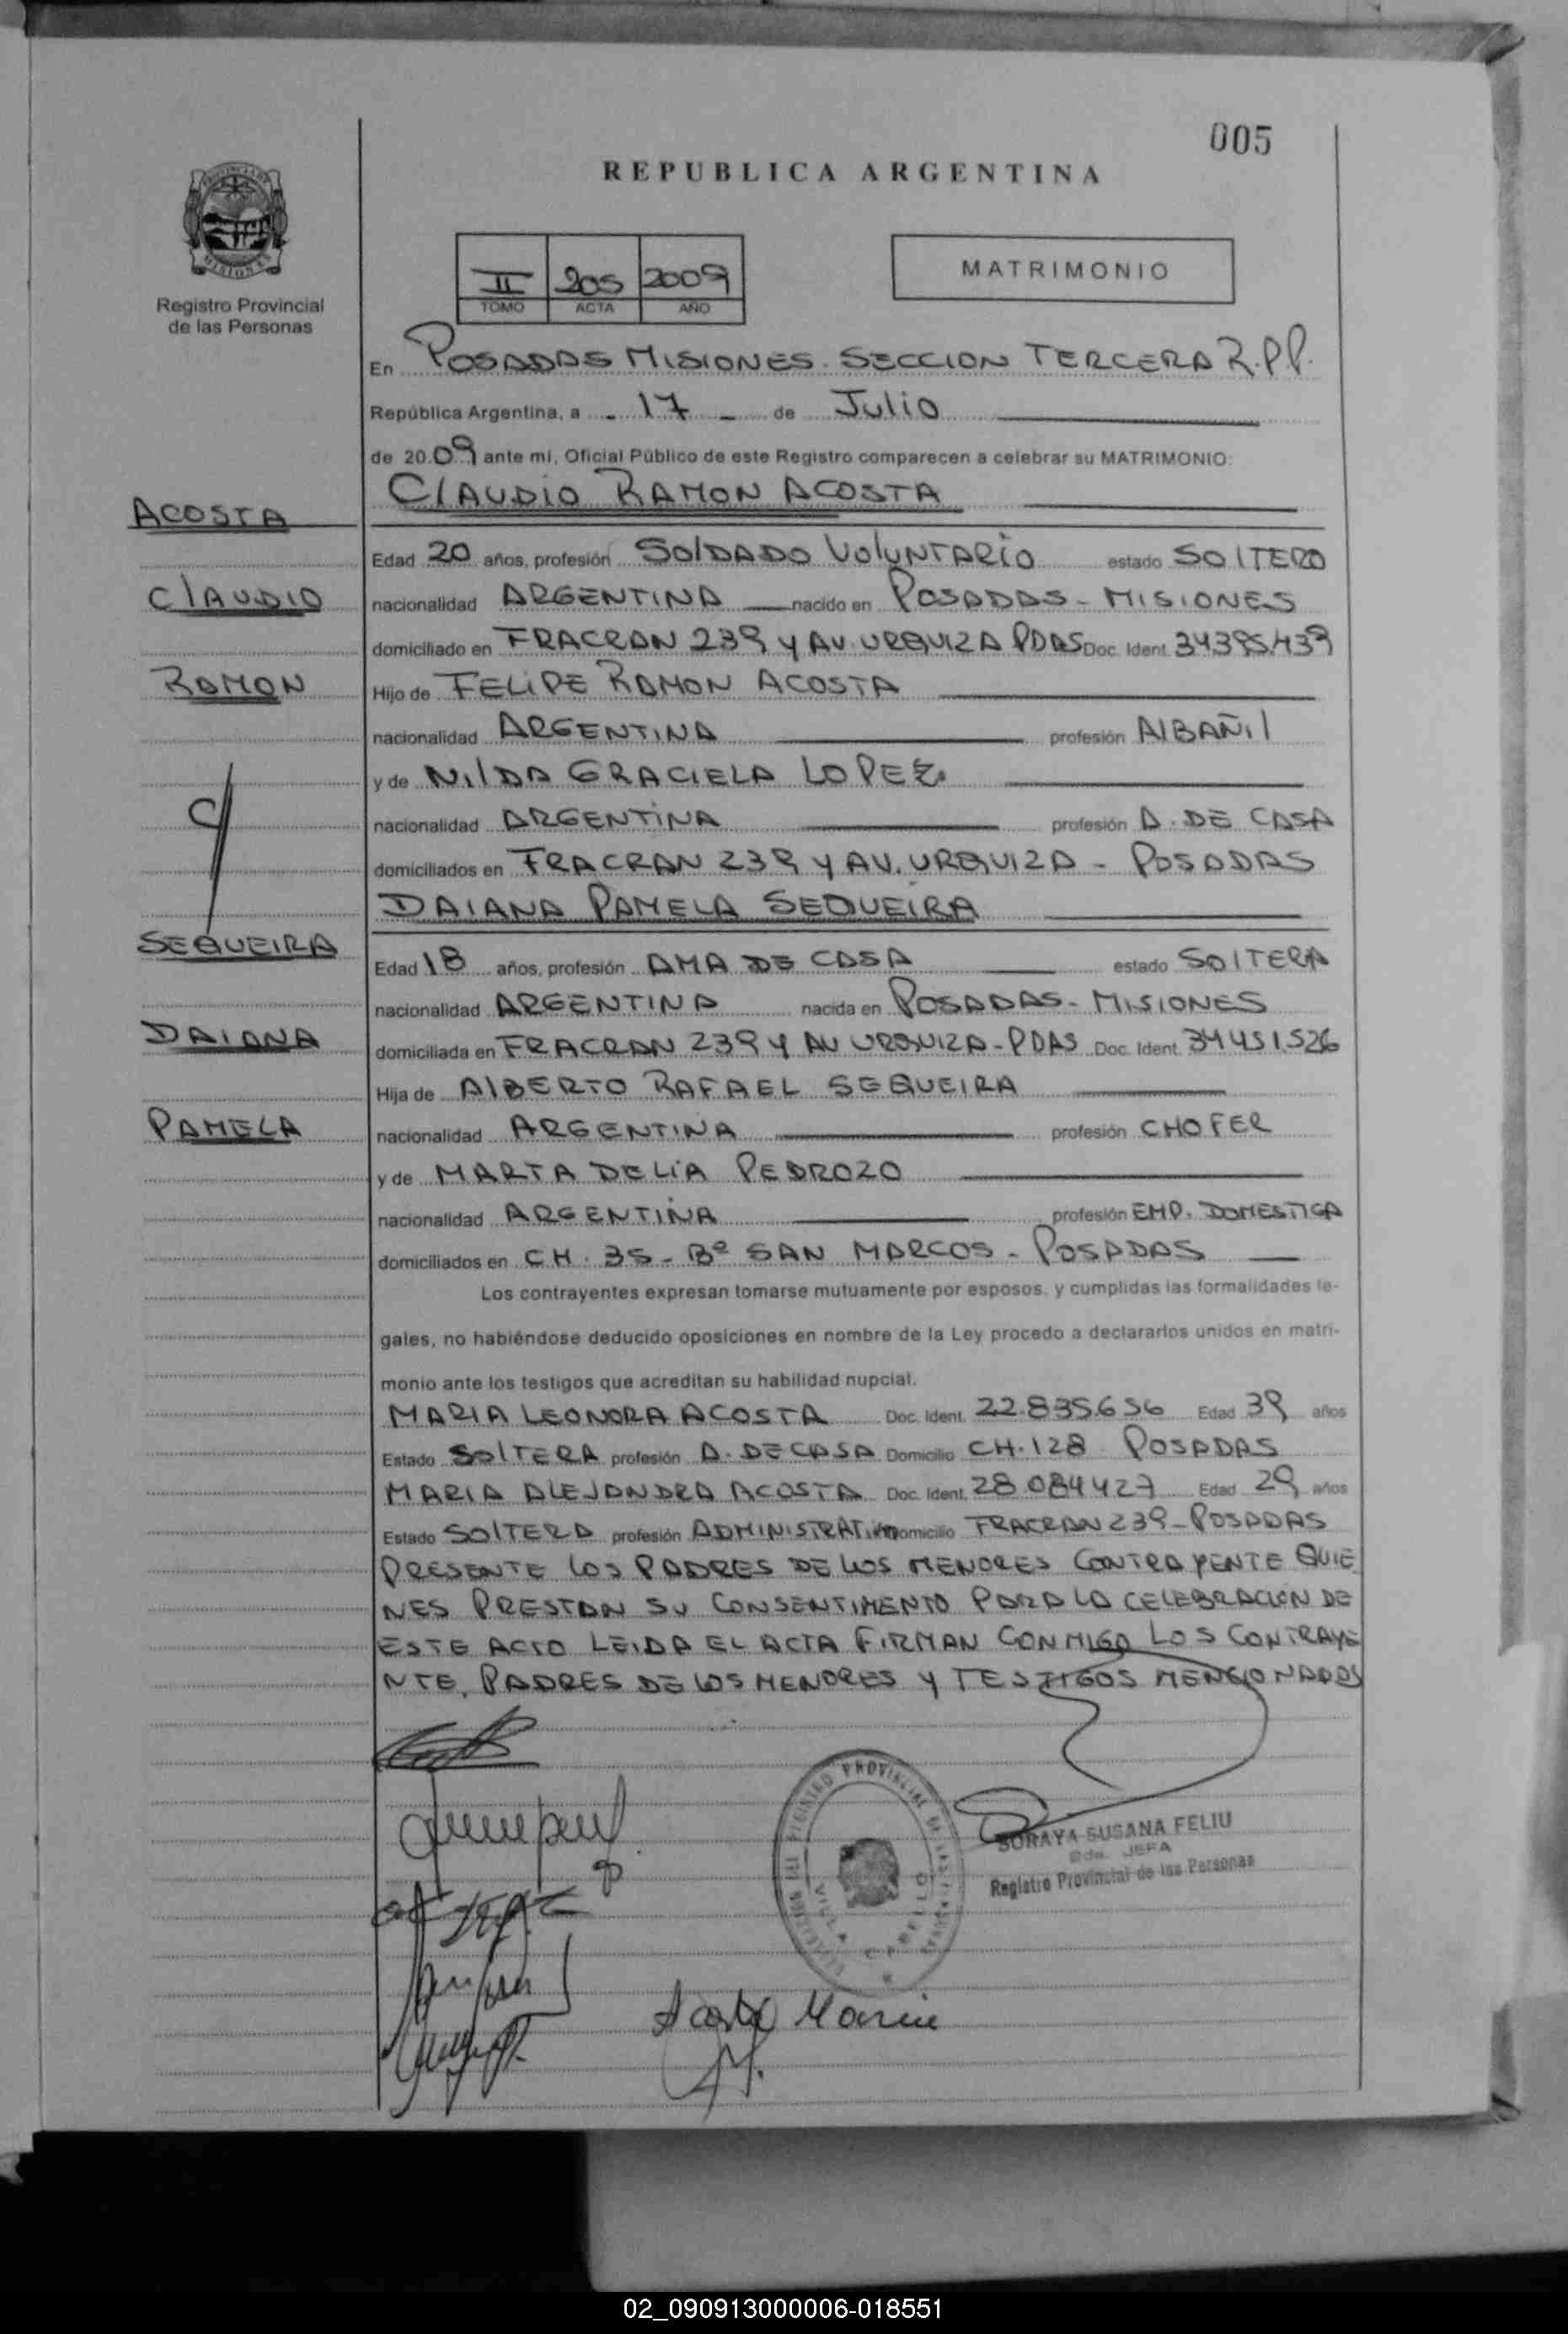 005
REPUBLICA ARGENTINA
II 205 2009
TOMO ACTA AÑO
MATRIMONIO
Registro Provincial
de las Personas
En POSADAS MISIONES. SECCION TERCERA R.P.P.
República Argentina, a - 17 - de Julio
de 2009 ante mí, Oficial Público de este Registro comparecen a celebrar su MATRIMONIO:
CLAUDIO RAMON ACOSTA
ACOSTA
Edad 20 años, profesión SOLDADO VOLUNTARIO estado SOLTERO
CLAUDIO
nacionalidad ARGENTINA nacido en POSADAS - MISIONES
domiciliado en FRACRAN 239 y AV. URQUIZA PDAS Doc. Ident. 34.395.439
RAMON
Hijo de FELIPE RAMON ACOSTA
nacionalidad ARGENTINA profesión ALBAÑIL
y de NILDA GRACIELA LOPEZ
C/
nacionalidad ARGENTINA profesión A. DE CASA
domiciliados en FRACRAN 239 y AV. URQUIZA - POSADAS
DAIANA PAMELA SEQUEIRA
SEQUEIRA
Edad 18 años, profesión AMA DE CASA estado SOLTERA
nacionalidad ARGENTINA nacida en POSADAS - MISIONES
DAIANA
domiciliada en FRACRAN 239 y AV URQUIZA - PDAS Doc. Ident. 34451.526
Hija de ALBERTO RAFAEL SEQUEIRA
PAMELA
nacionalidad ARGENTINA profesión CHOFER
y de MARTA DELIA PEDROZO
nacionalidad ARGENTINA profesión EMP. DOMESTICA
domiciliados en CH. 35 - Bº SAN MARCOS - POSADAS
Los contrayentes expresan tomarse mutuamente por esposos, y cumplidas las formalidades le-
gales, no habiéndose deducido oposiciones en nombre de la Ley procedo a declararlos unidos en matri-
monio ante los testigos que acreditan su habilidad nupcial.
MARIA LEONORA ACOSTA Doc. Ident. 22.835.656 Edad 39 años
Estado SOLTERA profesión A. DE CASA Domicilio CH. 128 POSADAS
MARIA ALEJANDRA ACOSTA Doc. Ident. 28.084427 Edad 29 años
Estado SOLTERA profesión ADMINISTRATIVA Domicilio FRACRAN 239 - POSADAS
PRESENTE LOS PADRES DE LOS MENORES CONTRAYENTE QUIE
NES PRESTAN SU CONSENTIMENTO PARA LA CELEBRACION DE
ESTE ACTO LEIDA EL ACTA FIRMAN CONMIGO LOS CONTRAYE
NTE, PADRES DE LOS MENORES Y TESTIGOS MENCIONADOS
SORAYA SUSANA FELIU
JEFA
Registro Provincial de las Personas
Acosta Maria
02_090913000006-018551